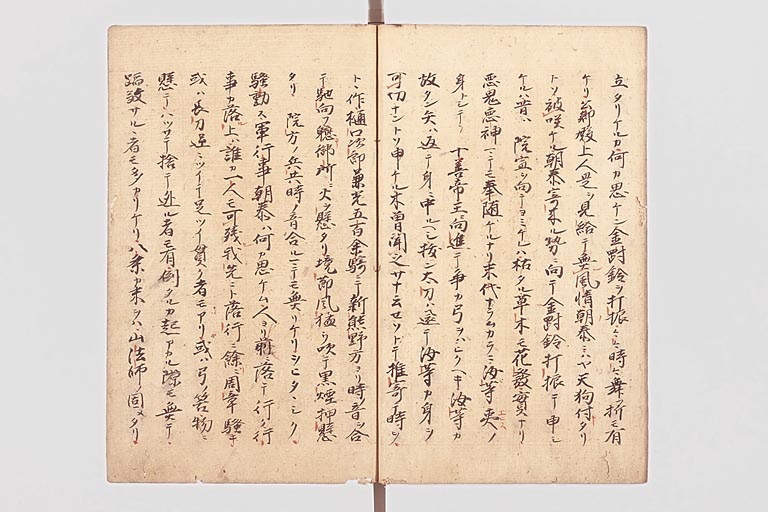 立タリケルカ何カ思ケン金對鈴ヲ打振ヒヒ時々舞折モ有
ケリ若殿上人是ヲ見給テ無風情朝泰ニハヤ天狗付タリ
トソ被咲ケル朝泰寄来ル勢ニ向テ金對鈴打振テ申シ
ケルハ昔ハ院宣ヲ向テヨミケレハ枯タル草木モ花發實ナリ
悪鬼悪神ニテモ奉随ケルナリ末代ナラムカラニ汝等夷ノ
身トシテ十善帝王ニ向進テ争カ弓ヲハヒクヘキ汝等カ
放タン矢ハ返テ身ニ中ルヘシ抜ン太刀ハ返テ汝等カ身ヲ
可切ナントソ申ケル木曽聞之サナ云セソトテ推寄時ヲ
ト作樋口次郎兼光五百余騎ニテ新熊野方ヨリ時ノ音ヲ合
テ馳向フ軈御所ニ火ヲ懸タリ境節風猛ク吹テ黒煙押懸
タリ 院方ノ兵共時ノ音合ルニモ無リケリシヒタヽシク
騒動ス軍行事朝泰ハ何カ思ケム人ヨリ前ニ落テ行ク行
事カ落上ハ誰カ一人モ可残我先ニト落行ニ餘ニ周章騒キ
或ハ長刀逆ニツイテ足ツイ貫ク者モアリ或ハ弓筈物ニ
懸テハツシテ捨テ逃ル者モ有倒タルカ起アカル隙モ無テ
蹈殺サルヽ者モ多カリケリ八条カ末ヲハ山法師ノ固メタリ